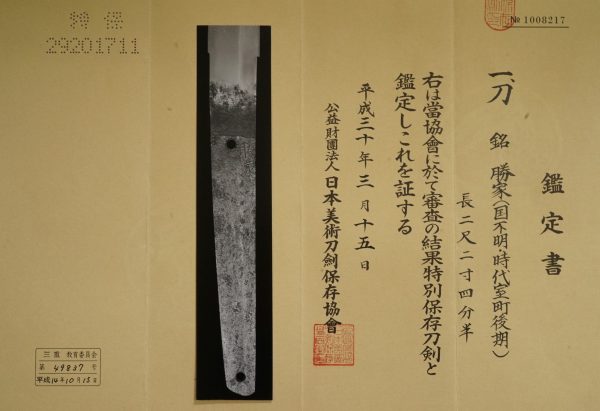 № 1008217
鑑定書
一、刀 銘 勝家(国不明・時代室町後期)
長二尺二寸四分半
右は當協會に於て審査の結果特別保存刀剣と
鑑定しこれを証する
平成三十年三月十五日
公益財團法人 日本美術刀劍保存協會
特保
29201711
三重 教育委員会
第 49837 号
平成14年10月15日